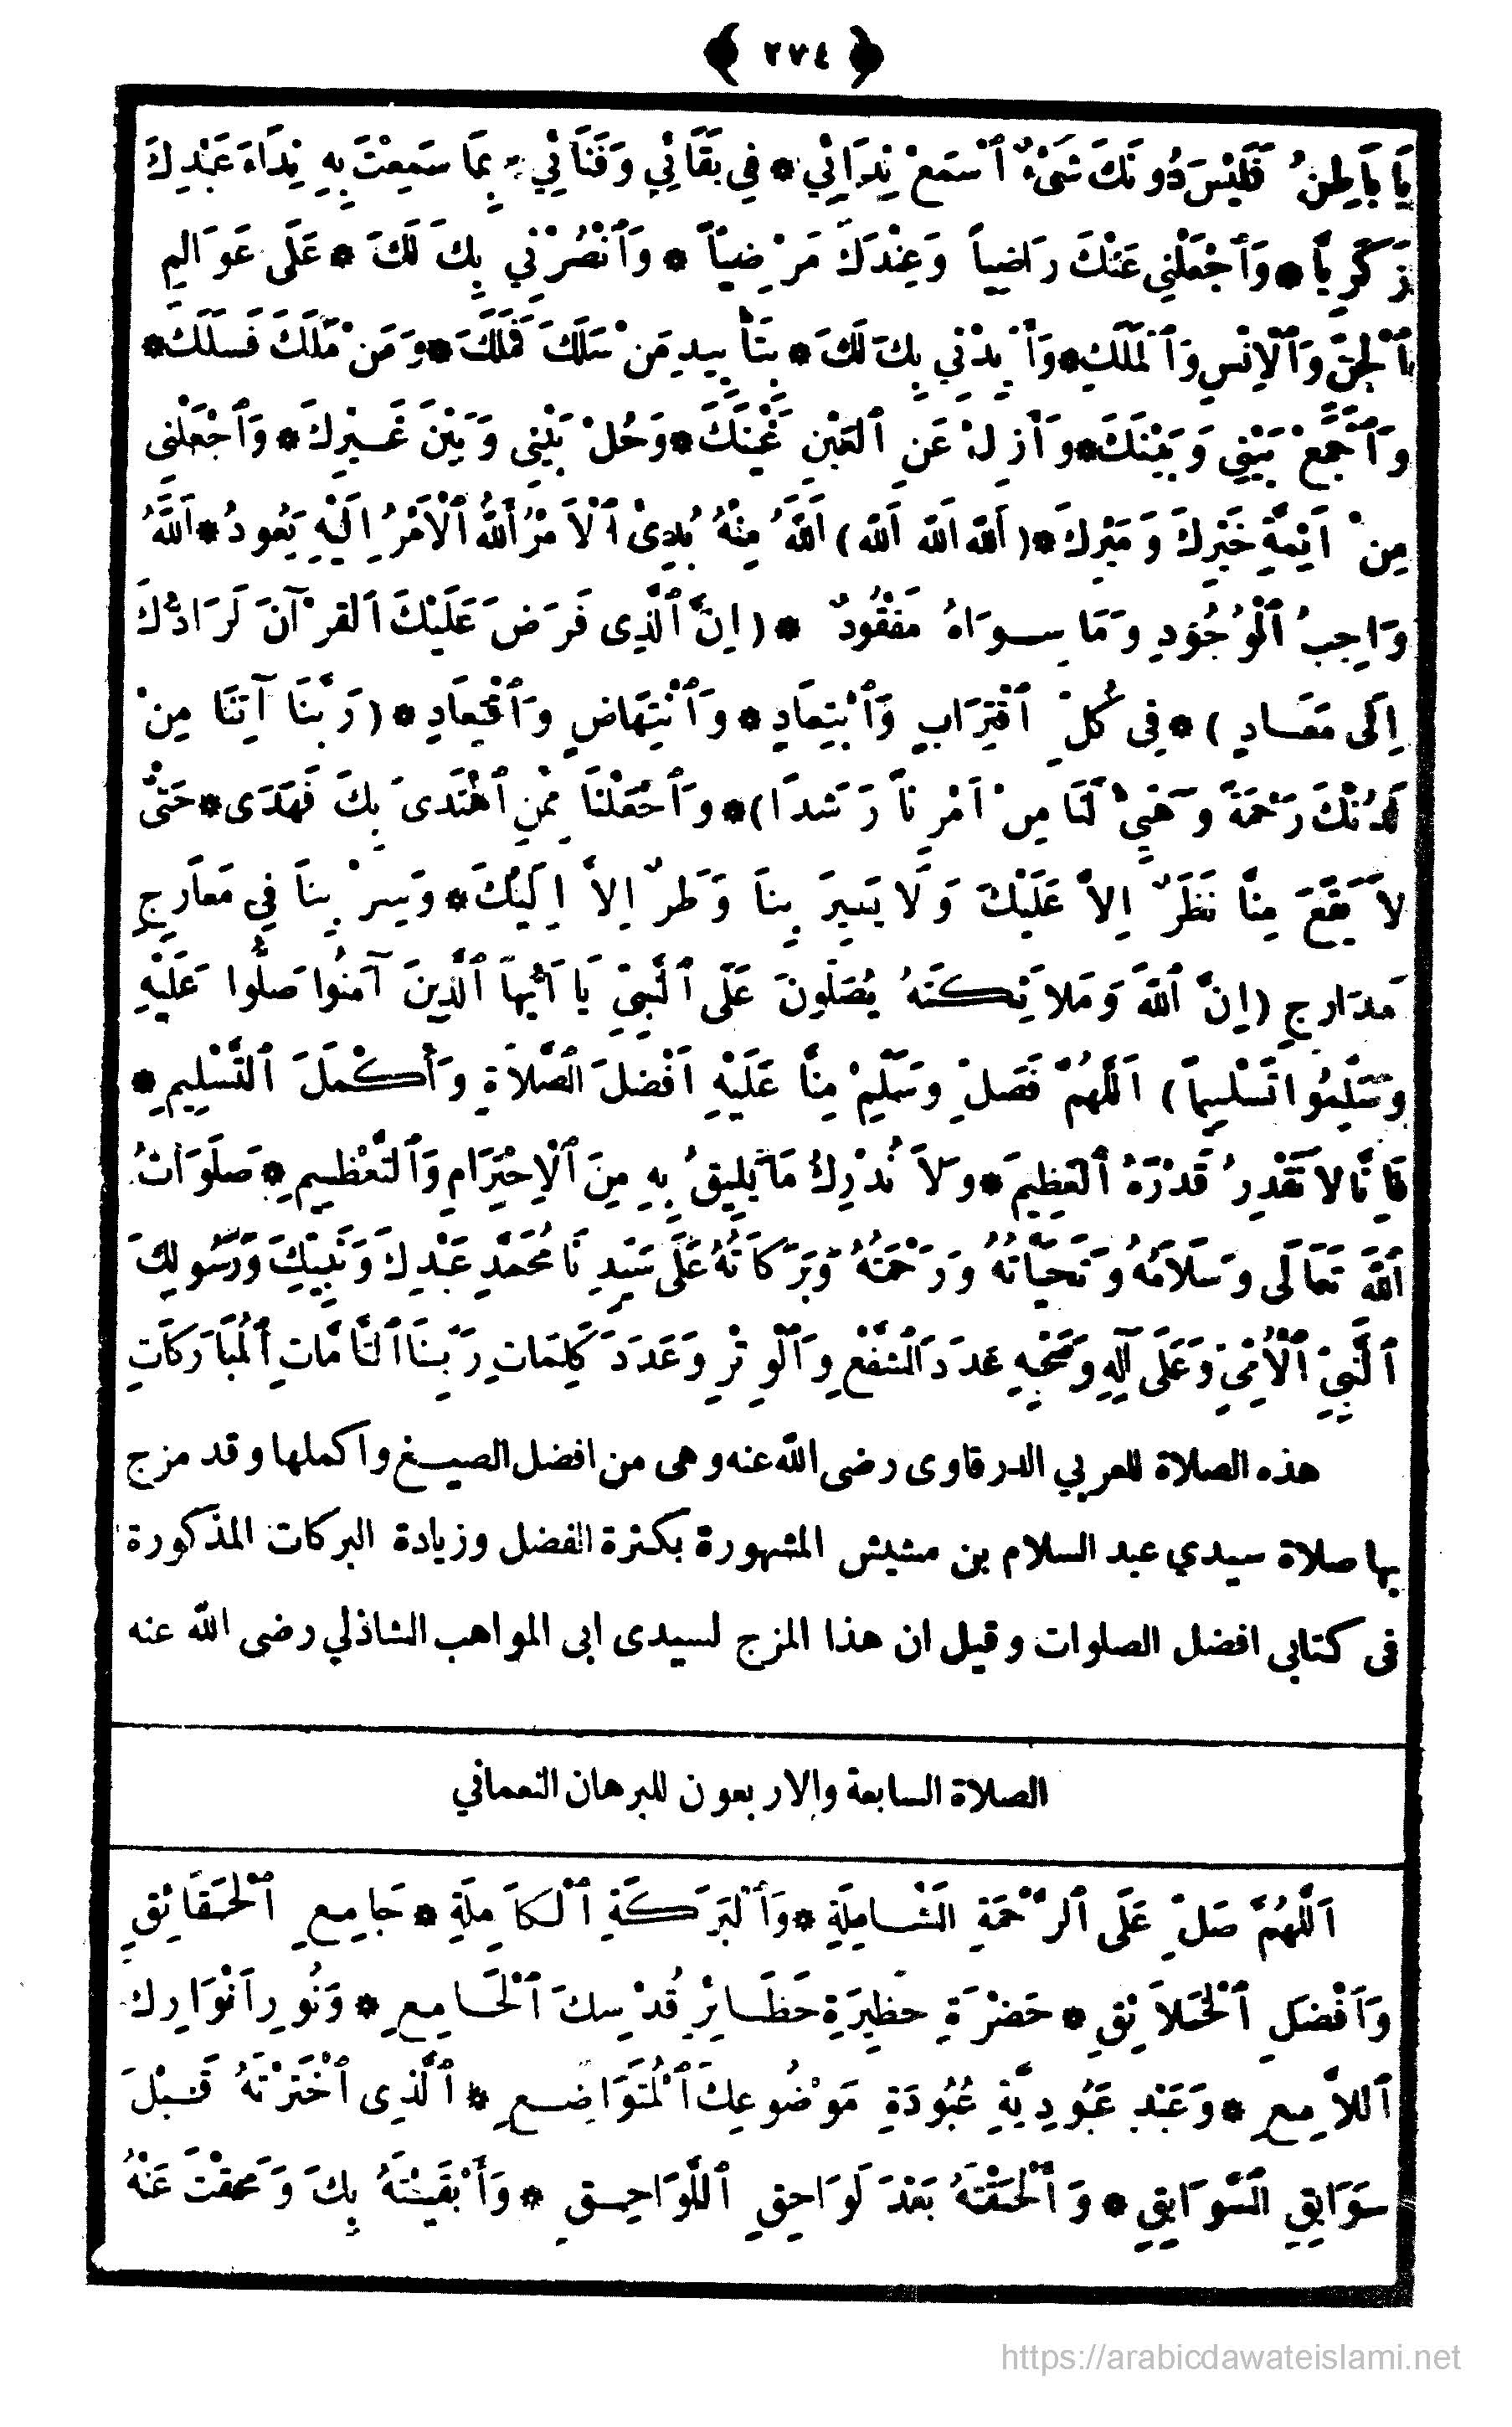 ﴿ ٢٧٤ ﴾
يَا بَاطِنُ فَلَيْسَ دُونَكَ شَىْءٌ ٱسْمَعْ نِدَائِي * فِي بَقَائِي وَفَنَائِي * بِمَا سَمِعْتَ بِهِ نِدَاءَ عَبْدِكَ
زَكَرِيَّا * وَٱجْعَلْنِي عَنْكَ رَاضِياً وَعِنْدَكَ مَرْضِيّاً * وَٱنْصُرْنِي بِكَ لَكَ * عَلَى عَوَالِمِ
ٱلْجِنِّ وَٱلْإِنْسِ وَٱلْمَلَكِ * وَأَيِّدْنِي بِكَ لَكَ * بِتَأْيِيدِ مَنْ سَلَكَ فَمَلَكَ * وَمَنْ مَلَكَ فَسَلَكَ *
وَٱجْمَعْ بَيْنِي وَبَيْنَكَ * وَأَزِلْ عَنِ ٱلْعَيْنِ غَيْنَكَ * وَحُلْ بَيْنِي وَبَيْنَ غَيْرِكَ * وَٱجْعَلْنِي
مِنْ اَئِمَّةِ خَيْرِكَ وَمَيْرِكَ * ( اَللّٰهَ اَللّٰهَ اَللّٰهَ ) اَللّٰهُ مِنْهُ بُدِئَ ٱلْاَمْرُ اَللّٰهُ ٱلْاَمْرُ اِلَيْهِ يَعُودُ * اَللّٰهُ
وَاجِبُ ٱلْوُجُودِ وَمَا سِوَاهُ مَفْقُودٌ * ( اِنَّ ٱلَّذِى فَرَضَ عَلَيْكَ اَلْقُرْآنَ لَرَادُّكَ
اِلَى مَعَادٍ ) * فِى كُلِّ ٱقْتِرَابٍ وَٱبْتِعَادٍ * وَٱنْتِهَاضٍ وَٱقْتِعَادٍ * ( رَبَّنَا آتِنَا مِنْ
لَدُنْكَ رَحْمَةً وَهَيِّئْ لَنَا مِنْ اَمْرِنَا رَشَدًا ) * وَٱجْعَلْنَا مِمَّنِ ٱهْتَدَى بِكَ فَهَدَى * حَتَّى
لَا يَقَعَ مِنَّا نَظَرٌ اِلاَّ عَلَيْكَ وَلَا يَسِيرَ بِنَا وَطَرٌ اِلاَّ اِلَيْكَ * وَسِرْ بِنَا فِي مَعَارِجِ
مَدَارِجِ ( اِنَّ ٱللّٰهَ وَمَلَائِكَتَهُ يُصَلُّونَ عَلَى ٱلنَّبِيِّ يَا أَيُّهَا ٱلَّذِينَ آمَنُوا صَلُّوا عَلَيْهِ
وَسَلِّمُوا تَسْلِيماً ) اَللّٰهُمَّ فَصَلِّ وَسَلِّمْ مِنَّا عَلَيْهِ اَفْضَلَ الصَّلَاةِ وَأَكْمَلَ ٱلتَّسْلِيمِ *
فَاِنَّا لَا نَقْدِرُ قَدْرَهُ ٱلْعَظِيمَ * وَلَا نُدْرِكُ مَا يَلِيقُ بِهِ مِنَ ٱلْاِحْتِرَامِ وَٱلتَّعْظِيمِ * صَلَوَاتُ
اَللّٰهِ تَعَالَى وَسَلَامُهُ وَتَحِيَّاتُهُ وَرَحْمَتُهُ وَبَرَكَاتُهُ عَلَى سَيِّدِنَا مُحَمَّدٍ عَبْدِكَ وَنَبِيِّكَ وَرَسُولِكَ
ٱلنَّبِيِّ ٱلْأُمِّيِّ وَعَلَى آلِهِ وَصَحْبِهِ عَدَدَ ٱلشَّفْعِ وَٱلْوِتْرِ وَعَدَدَ كَلِمَاتِ رَبِّنَا ٱلتَّامَّاتِ ٱلْمُبَارَكَاتِ
هذه الصلاة للعربي الدرقاوى رضى الله عنه وهى من افضل الصيغ واكملها وقد مزج
بها صلاة سيدي عبد السلام بن مشيش المشهورة بكثرة الفضل وزيادة البركات المذكورة
فى كتابى افضل الصلوات وقيل ان هذا المزج لسيدى ابى المواهب الشاذلي رضى الله عنه
الصلاة السابعة والاربعون للبرهان النعماني
اَللّٰهُمَّ صَلِّ عَلَى ٱلرَّحْمَةِ الشَّامِلَةِ * وَٱلْبَرَكَةِ ٱلْكَامِلَةِ * جَامِعِ ٱلْحَقَائِقِ
وَاَفْضَلِ ٱلْخَلَائِقِ * حَضْرَةِ حَظِيرَةِ حَظَائِرِ قُدْسِكَ ٱلْجَامِعِ * وَنُورِ اَنْوَارِكَ
ٱللَّامِعِ * وَعَبْدِ عَبُودِيَّةِ عُبُودَةِ مَوْضُوعِكَ ٱلْمُتَوَاضِعِ * ٱلَّذِى ٱخْتَرْتَهُ قَبْلَ
سَوَابِقِ السَّوَابِقِ * وَأَلْحَقْتَهُ بَعْدَ لَوَاحِقِ ٱللَّوَاحِقِ * وَأَبْقَيْتَهُ بِكَ وَمَحَقْتَ عَنْهُ
https://arabicdawateislami.net